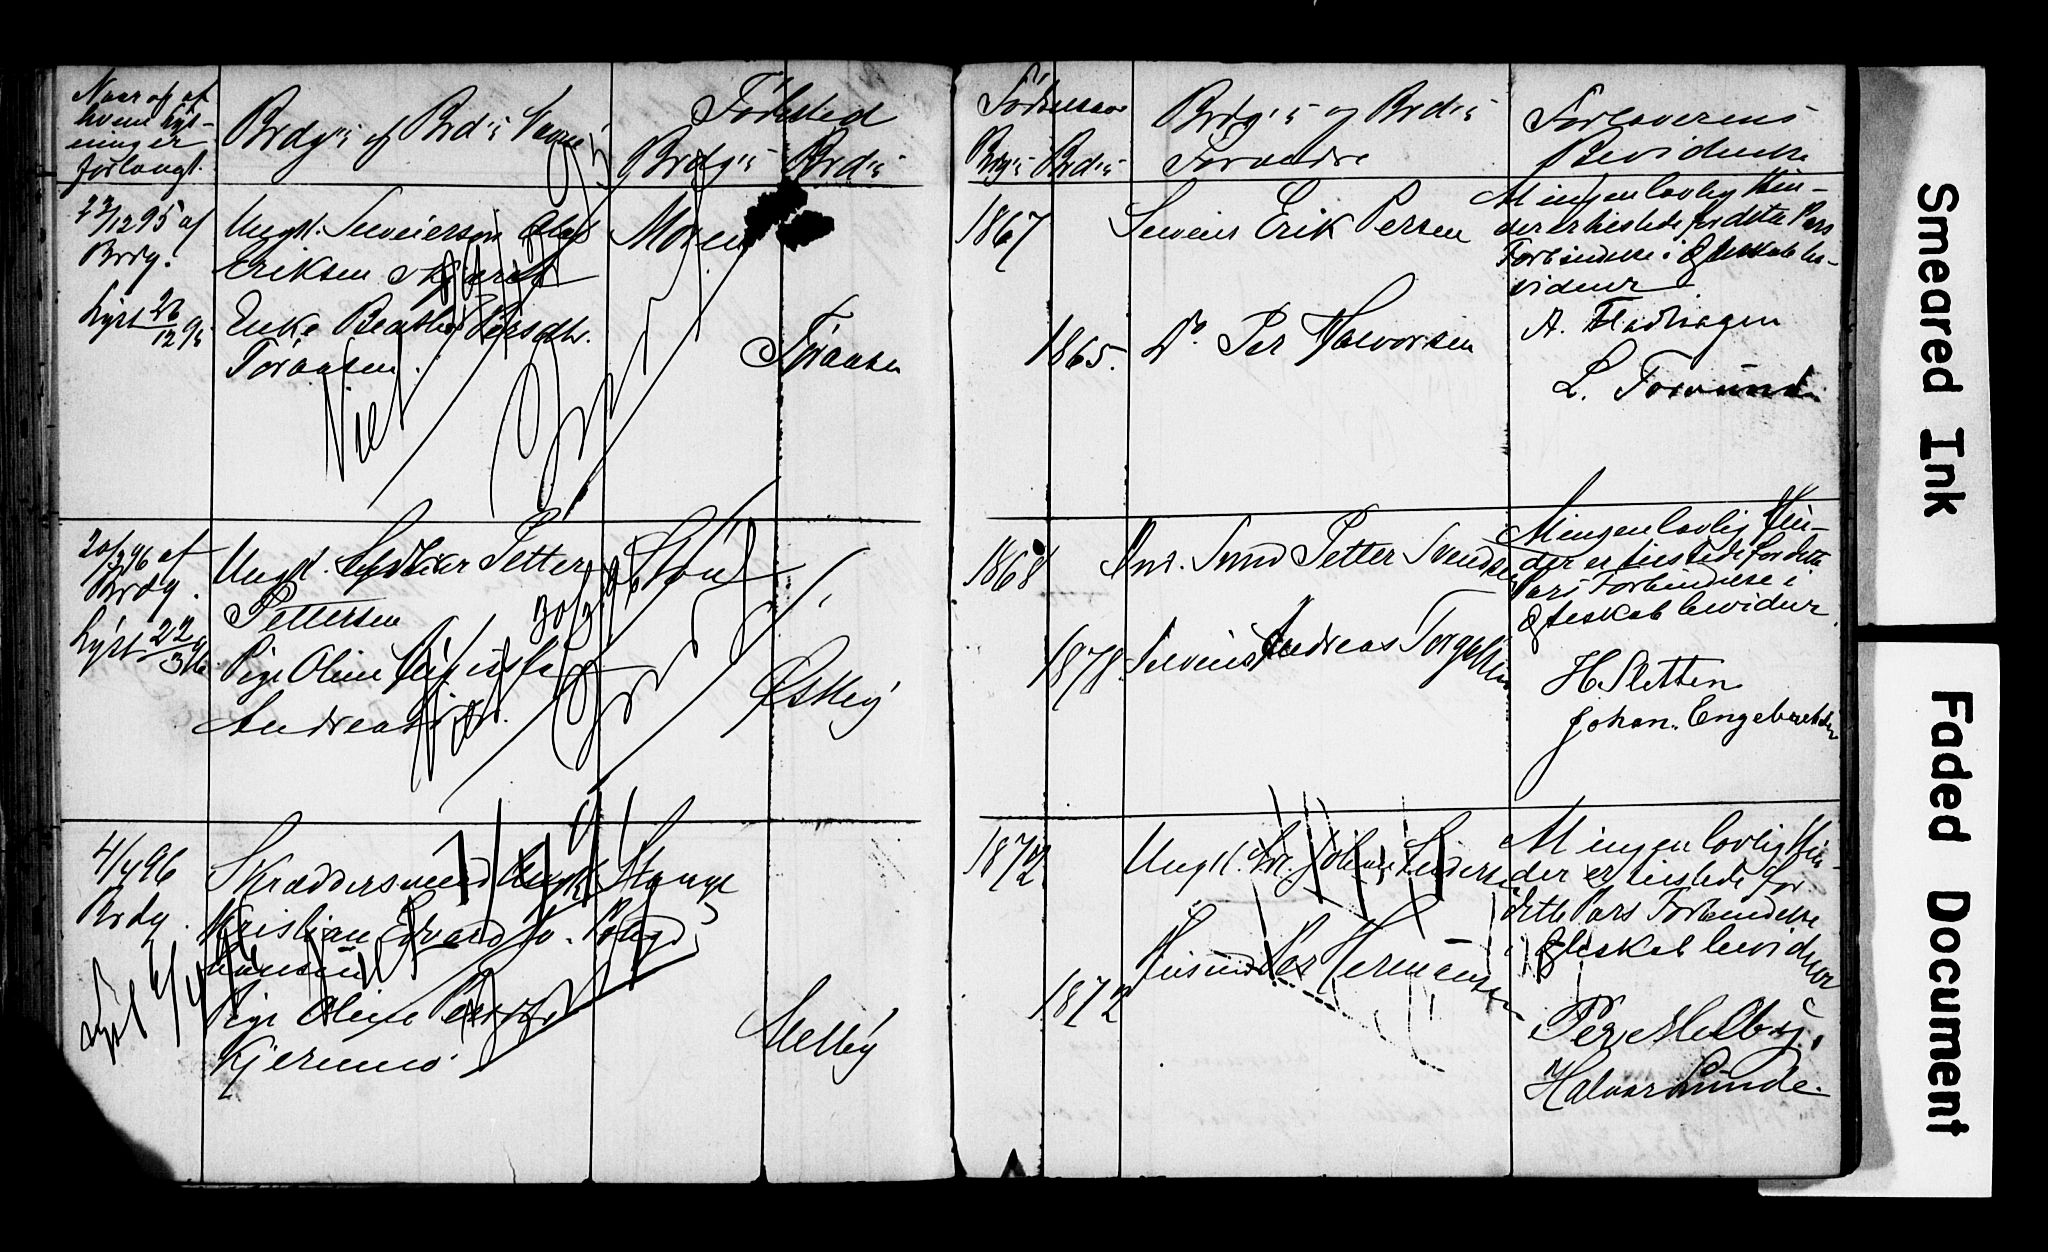 Naar og af
hvem lys-
ning er
forlangt.
Brdg's og Brd's Navne
Fødested
Brdg's Brd's
Fødselsaar
Brdg's Brd's
Brdg's og Brd's
Forældre
Forloverens
Bevidnelse
23/12 95 af
Brdg.
Lyst 26/12 95
Ungk.
Eriksen
Enke Beathe Persdtr.
Toraasen.
Viet
Moren
Toraasen
1867
1865.
Selveier Erik Persen
Do Per Halvorsen
At ingen lovlig Hin-
der er tilstede for dette Pars
Forbindelse i Ægteskab be-
vidner
A. Fladhagen
L. Torsund
20/3 96 af
Brdg.
Lyst 22/3 96
Ungk. Petter
Pettersen
Pige Oline
Viet
30/3 96
Østby
1868
1878.
Svend Petter Svendsen
Selveier Andreas Torgelsen
At ingen lovlig Hin-
der er tilstede for dette
Pars Forbindelse i
Ægteskab bevidner.
H. Sletten
Johan. Engebretsen
4/4 96
Brdg.
Lyst 6/4 96
Skræddersvend Ungk.
Kristian Edvard
Pige Oline
Kjernmo.
Viet
Stange
Melby
1872
1872
Ungk. Johan
Husmd Per Hermansen
At ingen lovlig Hin-
der er tilstede for
dette Pars Forbindelse
i Ægteskab bevidner
Per Melby.
Halvor Lunde.
Smeared Ink
Faded Document